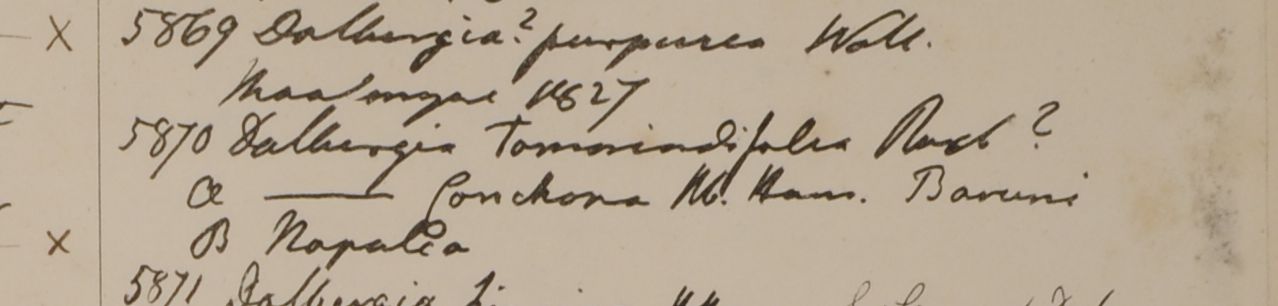 x 5869 Dalbergia? purpurea Wall.
Maalmyne 1827
5870 Dalbergia Tamarindifolia Roxb?
a —— Conchona H. Ham. Baruni
x B Napalia
5871 Dalbergia